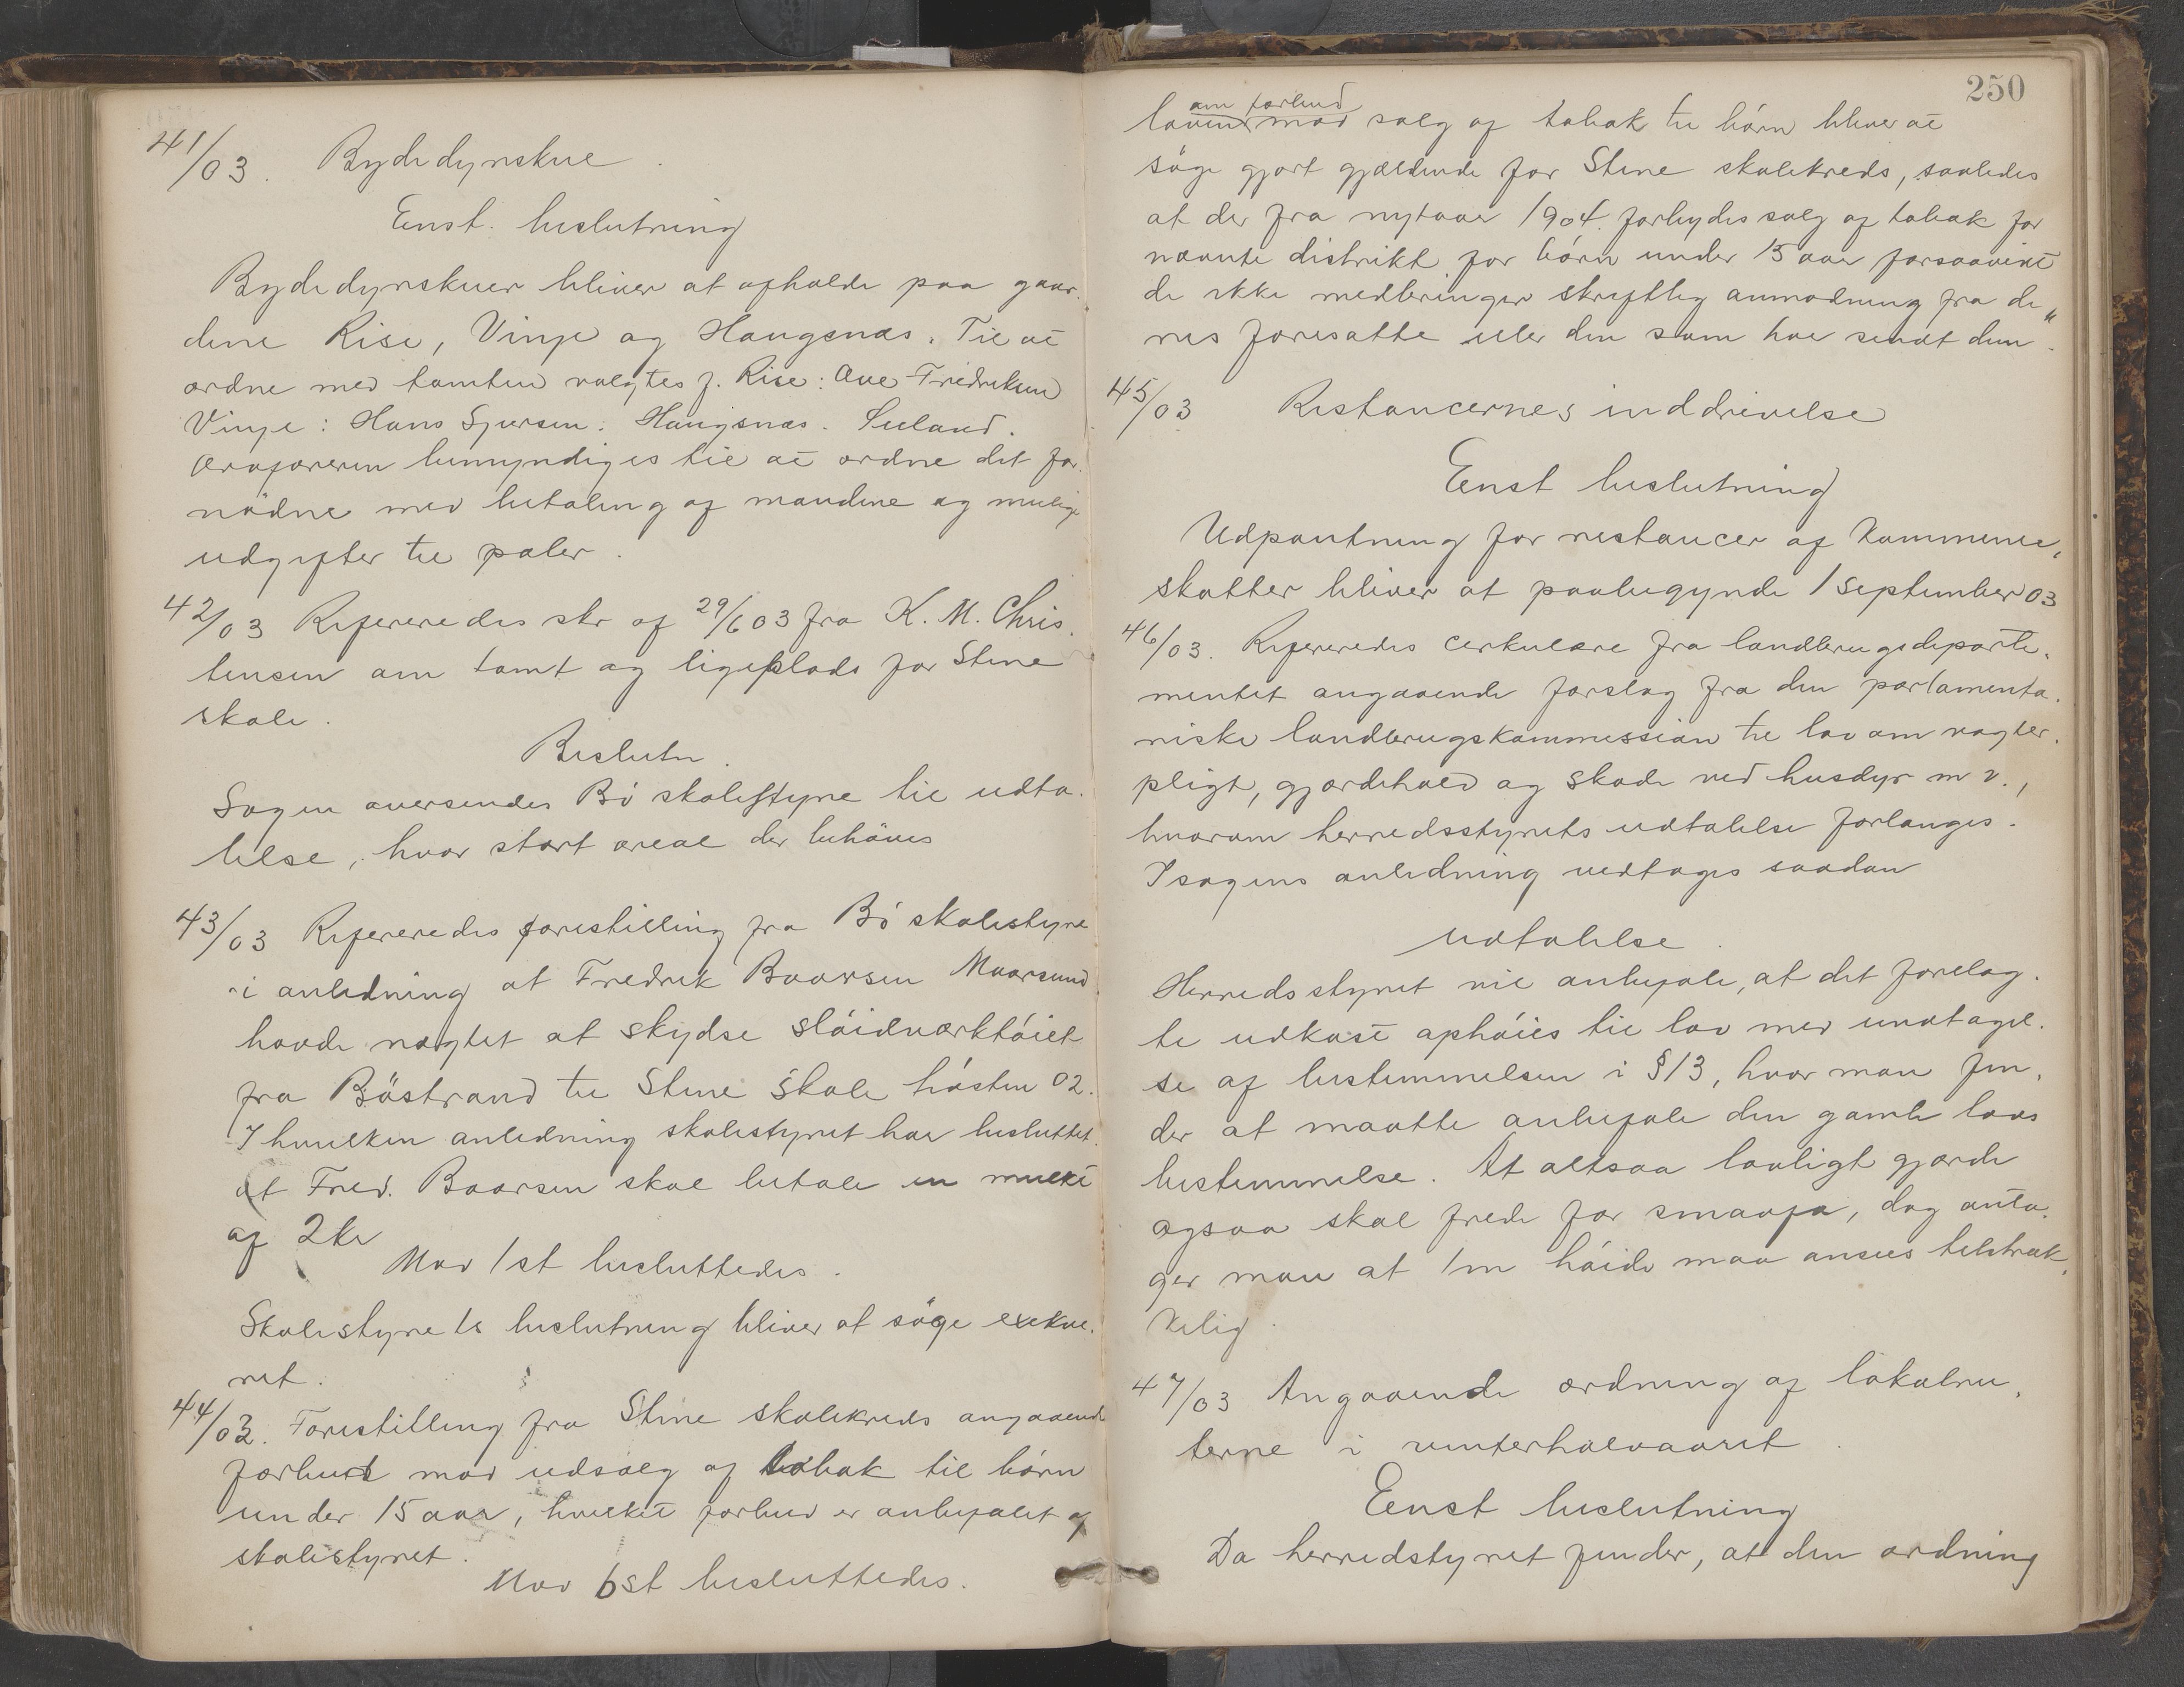 41/03. Bygdedyrskue.
Enst. beslutning
Bygdedyrskuer bliver at afholde paa gaar-
dene Rise, Vinje og Haugsnæs. Til at
ordne med tomten valgtes f. Rise: Ove Fredriksen
Vinje: Hans Sjursen. Haugsnæs.
Ordføreren bemyndiges til at ordne det for-
nødne med betaling af mændene og mulige
udgifter til pæler.
42/03 Refereredes skr af 29/6 03 fra K. M. Chris-
tensen om tomt og ligeplads for Stene
skole.
Beslutn.
Sagen oversendes Bö skolestyre til udta-
lelse, hvor stort areal der behöves
43/03 Refereredes forestilling fra Bö skolestyre
i anledning at Fredrik Baarsen Maarsund
havde nægtet at skydse slöidværktöiet
fra Böstrand til Stene Skole hösten 02.
I hvilken anledning skolestyret har besluttet
at Fred. Baarsen skal betale en mulkt
af 2 kr
Mod 1 st besluttedes.
Skolestyrets beslutning bliver at söge exekve-
ret.
44/03. Forestilling fra Stene skolekreds angaaende
forbud mod udsalg af tobak til börn
under 15 aar, hvilket forbud er anbefalet af
skolestyret.
Mod 6 st besluttedes.
250
om forbud
loven mod salg af tobak til börn bliver at
söge gjort gjældende for Stene skolekreds, saaledes
at der fra nytaar 1904 forbydes salg af tobak for
nævnte distrikt for börn under 15 aar forsaavidt
de ikke medbringer skriftlig anmodning fra de"
res foresatte eller den som har sendt dem.
45/03 Restancernes inddrivelse
Eenst beslutning
Udpantning for restancer af Kommune-
skatter bliver at paabegynde 1 september 03
46/03. Refereredes cirkulære fra landbrugsdeparte-
mentet angaaende forslag fra den parlamenta-
riske landbrugskommission til lov om vogter-
pligt, gjærdehold og skade ved husdyr m v.,
hvorom herredsstyrets udtalelse forlanges.
I sagens anledning vedtages saadan
udtalelse.
Herredsstyret vil anbefale, at det forelag-
te udkast ophöies til lov med undtagel-
se af bestemmelsen i § 13, hvor man fin-
der at maatte anbefale den gamle lovs
bestemmelse. At altsaa lovligt gjærde
ogsaa skal frede for smaafæ, dog anta-
ger man at 1 m höide maa ansees tilstræk-
kelig.
47/03 Angaaende ordning af lokalru-
terne i vinterhalvaaret.
Eenst beslutning
Da herredstyret finder, at den ordning